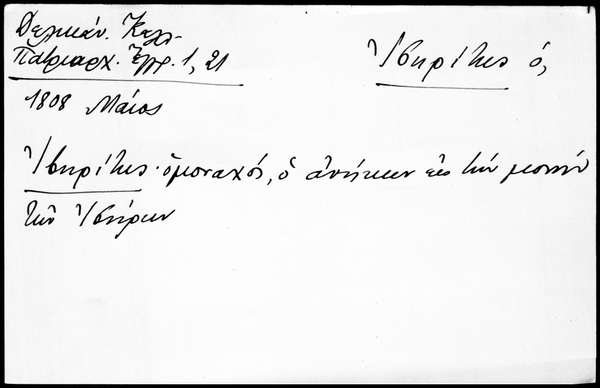 Δελικάν. Καλλ.
Πατριαρχ. Ἔγγρ. 1, 21
Ἰβηρίτης ὁ,
1808 Μάιος
Ἰβηρίτης· ὁ μοναχός, ὁ ἀνήκων εἰς τὴν μονὴν
τῶν Ἰβήρων